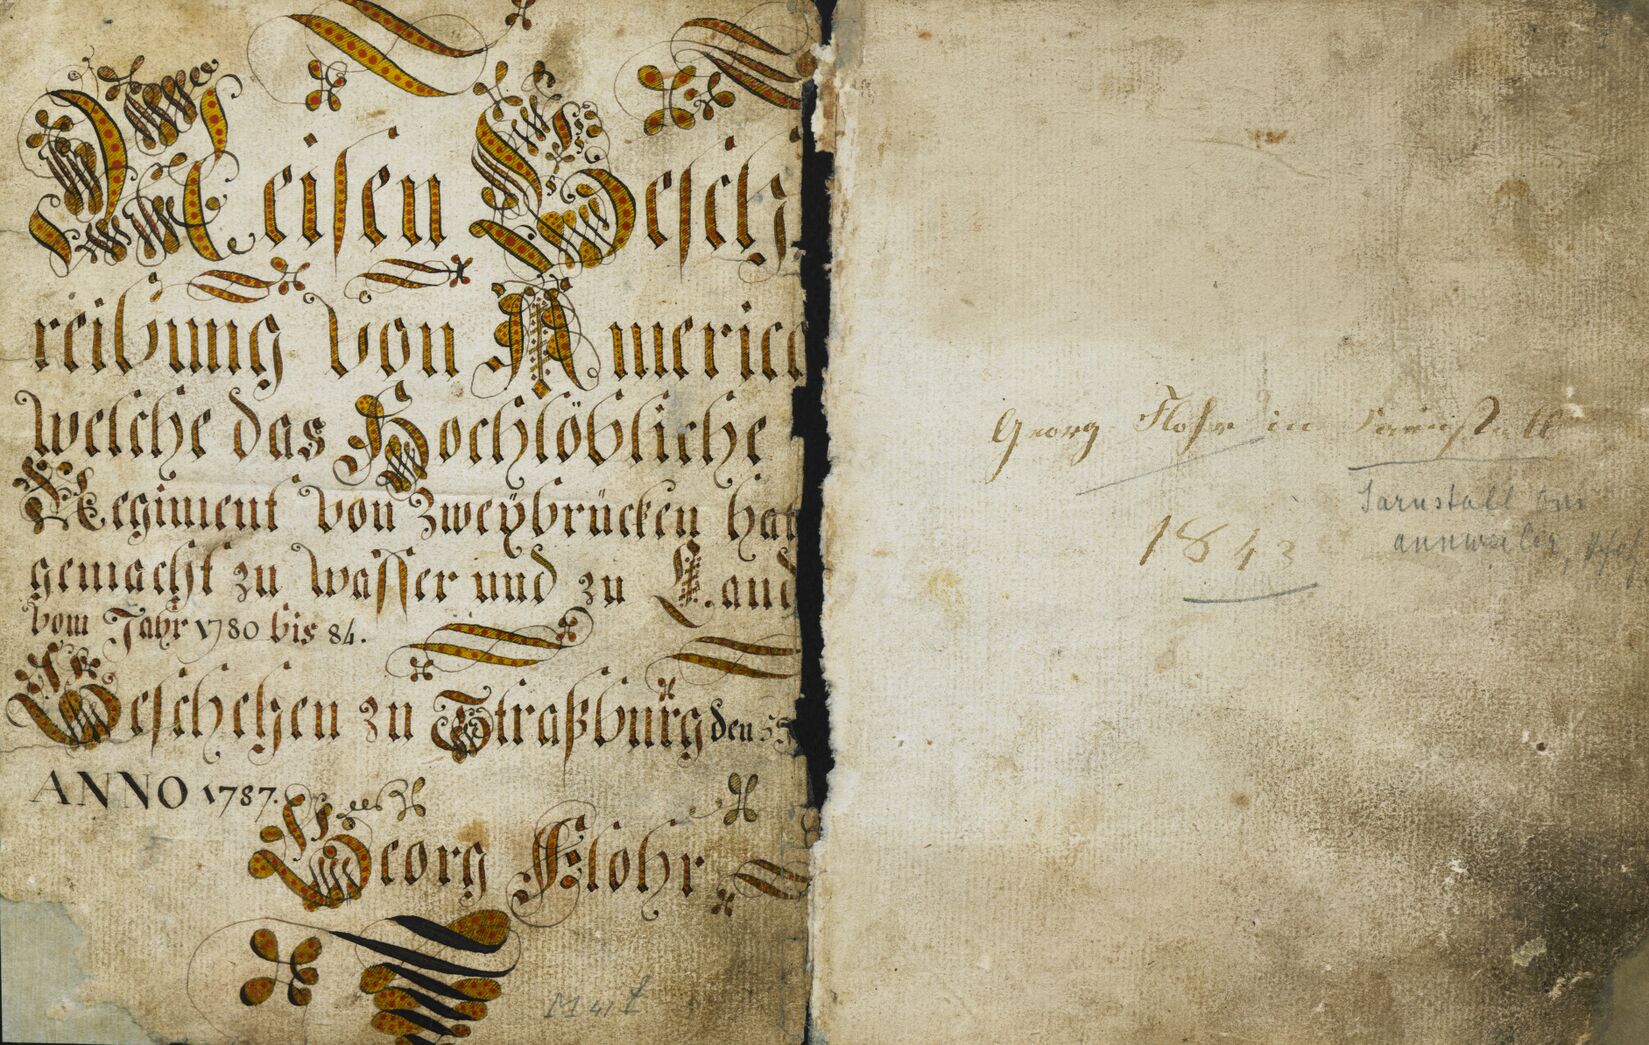 Reisen Besch
reibung von America
welche das Hochlöbliche
Regiment von Zweÿbrücken hat
gemacht zu Wasser und zu Land
vom Jahr 1780 bis 84.
Geschehen zu Straßburg den
ANNO 1787.
Georg Flohr
Georg Flohr in Sarnstall
Sarnstall bei
annweiler, Pfalz
1843